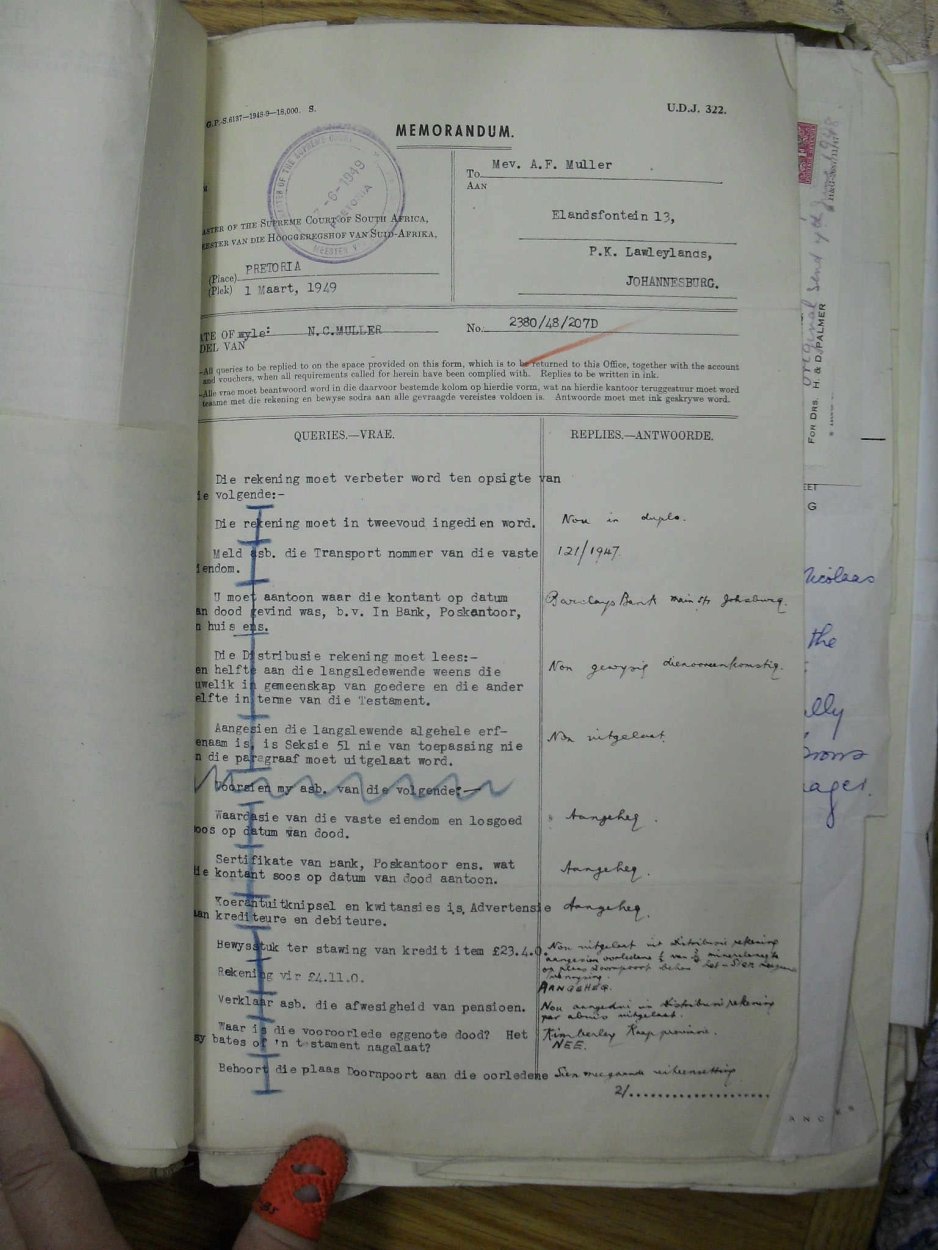 G.P.-S.6137—1948-9—18,000. S.
U.D.J. 322.
MEMORANDUM.
OF THE SUPREME COURT
-6-1949
PRETORIA
MEESTER
To Mev. A.F. Muller
AAN
Elandsfontein 13,
P.K. Lawleylands,
JOHANNESBURG.
ASTER OF THE SUPREME COURT OF SOUTH AFRICA,
EESTER VAN DIE HOOGGEREGSHOF VAN SUID-AFRIKA,
(Place) PRETORIA
(Plek) 1 Maart, 1949
ATE OF wyle: N.C.MULLER
DEL VAN
No. 2380/48/207D
—All queries to be replied to on the space provided on this form, which is to be returned to this Office, together with the account
and vouchers, when all requirements called for herein have been complied with. Replies to be written in ink.
—Alle vrae moet beantwoord word in die daarvoor bestemde kolom op hierdie vorm, wat na hierdie kantoor teruggestuur moet word
tesame met die rekening en bewyse sodra aan alle gevraagde vereistes voldoen is. Antwoorde moet met ink geskrywe word.
QUERIES.—VRAE.
REPLIES.—ANTWOORDE.
Die rekening moet verbeter word ten opsigte van
ie volgende:-
Die rekening moet in tweevoud ingedien word.
Nou in duplo.
Meld asb. die Transport nommer van die vaste
iendom.
121/1947.
U moet aantoon waar die kontant op datum
an dood gevind was, b.v. In Bank, Poskantoor,
n huis ens.
Barclays Bank main St. Johsburg.
Die Distribusie rekening moet lees:-
en helfte aan die langsledewende weens die
uwelik in gemeenskap van goedere en die ander
elfte in terme van die Testament.
Nou gewysig dienooreenkomstig.
Aangesien die langslewende algehele erf-
enaam is, is Seksie 51 nie van toepassing nie
n die paragraaf moet uitgelaat word.
Nou uitgelaat.
Voorsien my asb. van die volgende:-
Waardasie van die vaste eiendom en losgoed
oos op datum van dood.
Aangeheg.
Sertifikate van Bank, Poskantoor ens. wat
ie kontant soos op datum van dood aantoon.
Aangeheg.
Koerantuitknipsel en kwitansies is, Advertensie
aan krediteure en debiteure.
Aangeheg.
Bewysstuk ter stawing van kredit item £23.4.0.
Nou uitgelaat uit distribusie rekening
aangesien oorledene
op plaas Doornpoort
Rekening vir £4.11.0.
AANGEHEG.
Verklaar asb. die afwesigheid van pensioen.
Nou aangedui in distribusie rekening
per abuis uitgelaat.
Waar is die vooroorlede eggenote dood? Het
sy bates of 'n testament nagelaat?
Kimberley Kaap provinsie.
NEE.
Behoort die plaas Doornpoort aan die oorledene
Sien meegaande uiteensetting
2/......................
original send
1948
FOR DRS. H. & D. PALMER
EET
G
Nicolaas
the
ally
ager.
ANCES